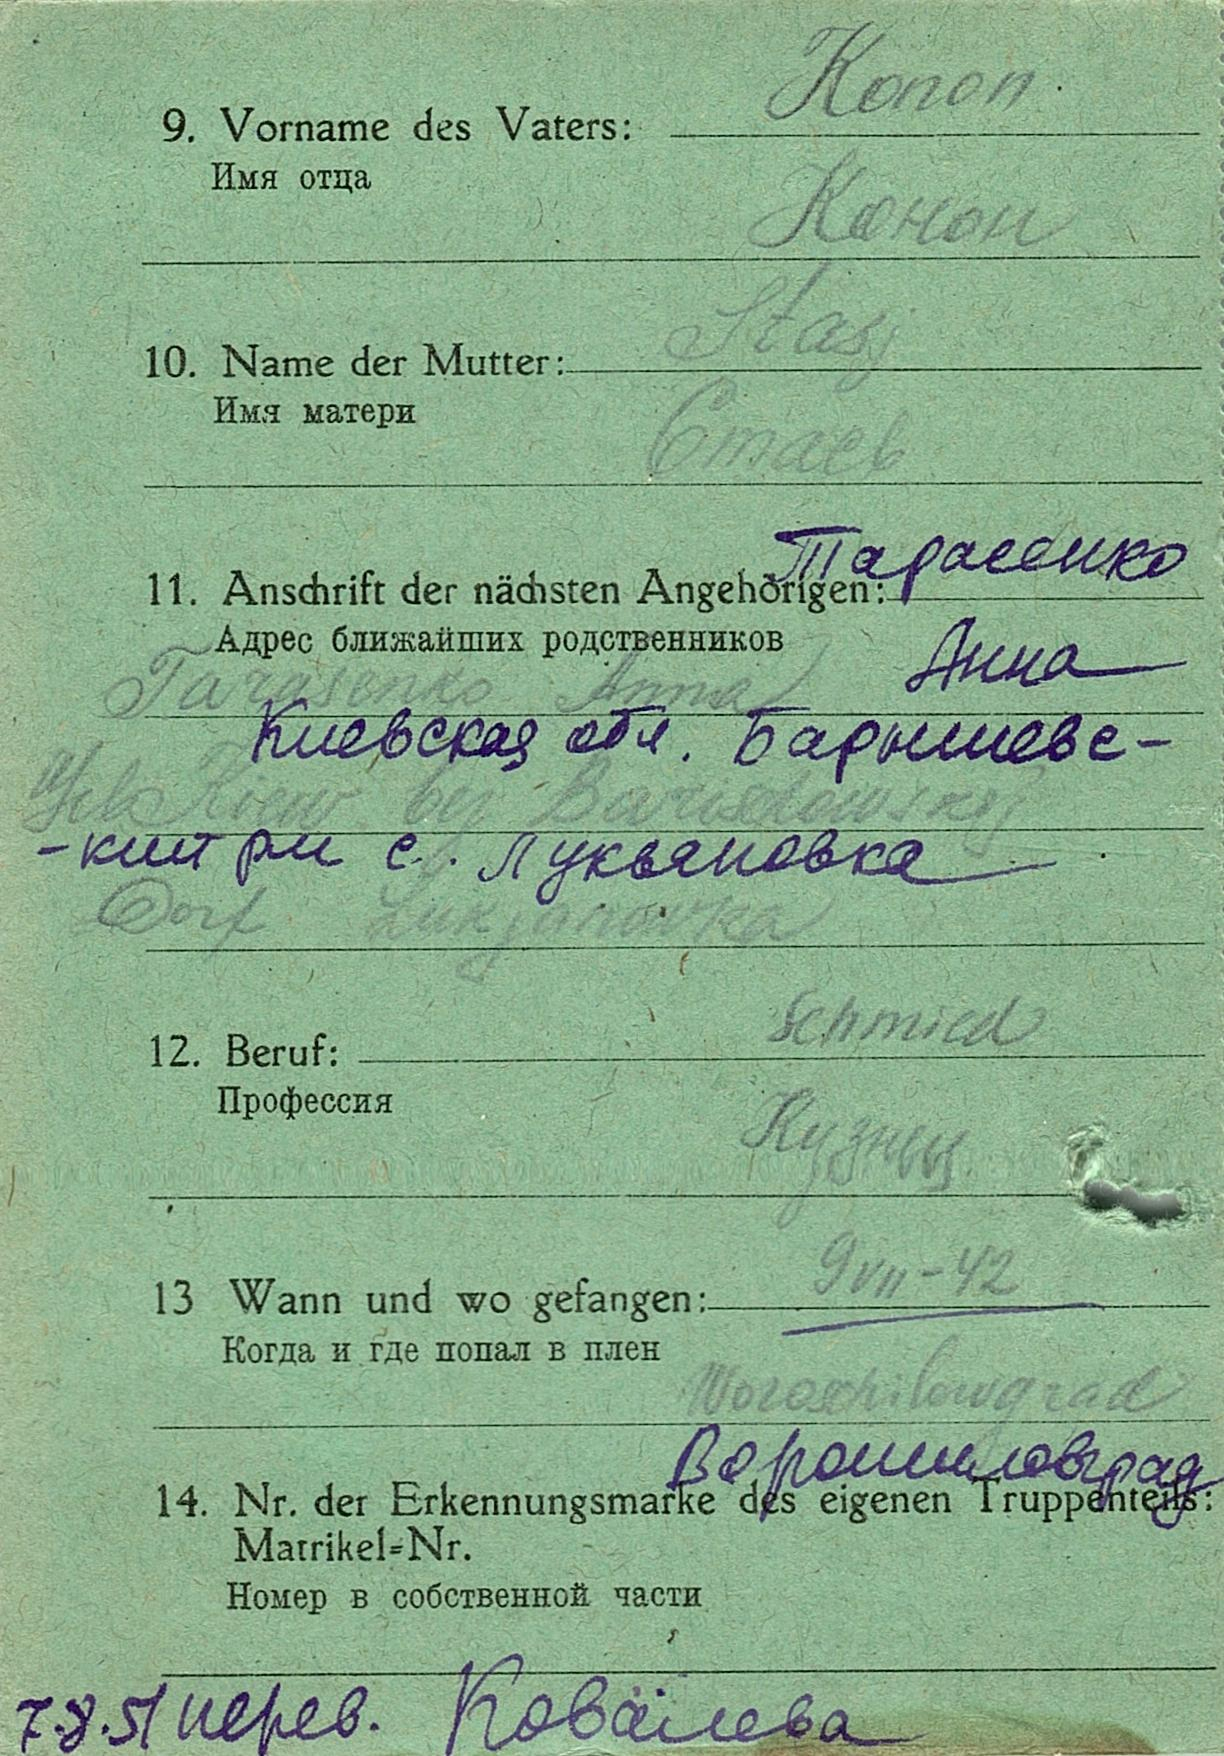 Konon
9. Vorname des Vaters:
Имя отца
Конон
Stasj
10. Name der Mutter:
Имя матери
Стась
Тарасенко
11. Anschrift der nächsten Angehörigen:
Адрес ближайших родственников
Анна
Tarasenko Anna
Киевская обл. Барышевс-
Kiew
-кий рн с. Лукьяновка
Dorf Lukjanowka
Schmied
12. Beruf:
Профессия
Кузнец
9 VII-42
13 Wann und wo gefangen:
Когда и где попал в плен
Woroschilowgrad
Ворошиловград
14. Nr. der Erkennungsmarke des eigenen Truppenteils:
Matrikel=Nr.
Номер в собственной части
7.8.51 перев. Ковалева